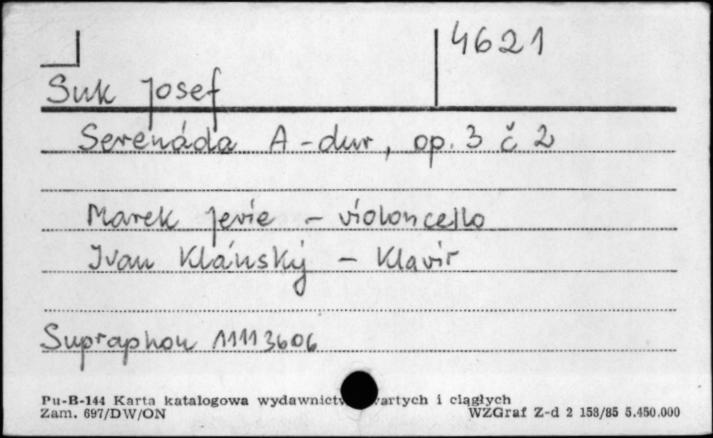 4621
Suk Josef
Serenáda A-dur, op. 3 č 2
Marek Jerie - violoncello
Ivan Klánský - Klavir
Supraphon 11113606
Pu-B-144 Karta katalogowa wydawnictw i ciągłych
Zam. 697/DW/ON WZGraf Z-d 2 158/85 5.450.000